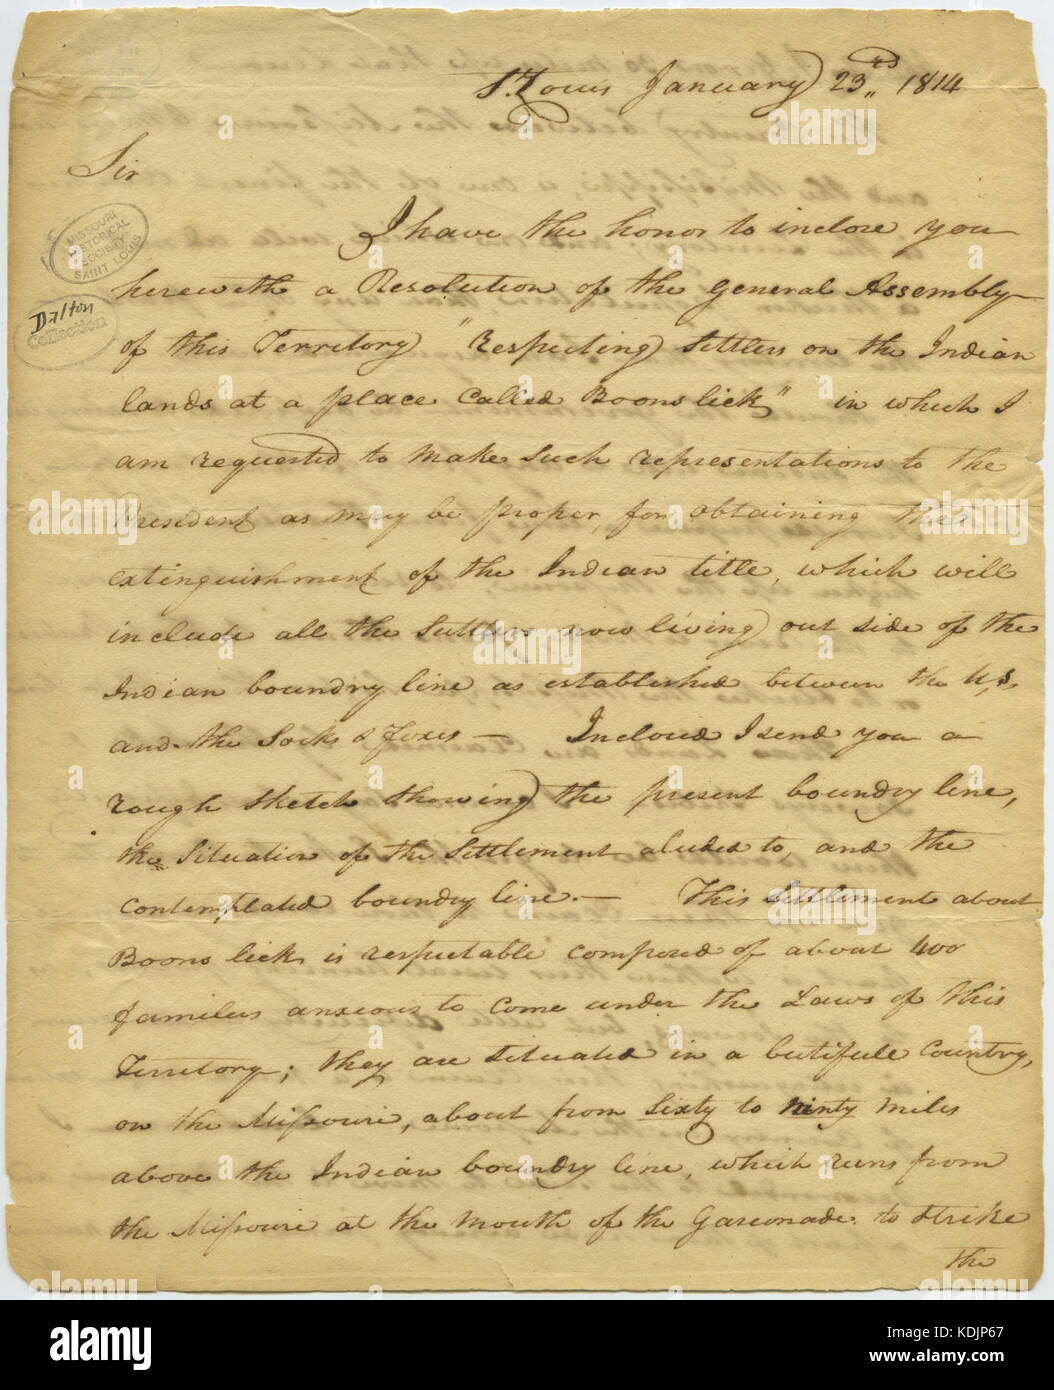 St. Louis January 23rd 1814
Sir
MISSOURI HISTORICAL SOCIETY SAINT LOUIS
Dalton Collection
I have the honor to inclose you
herewith a Resolution of the General Assembly
of this Territory "Respecting Settlers on the Indian
lands at a place Called Boons lick" in which I
am requested to make such representations to the
President as may be proper, for obtaining that
extinguishment of the Indian title, which will
include all the settlers now living out side of the
Indian boundry line as established between the U,S,
and the Socks & foxes — Incloused I send you a
rough sketch showing the present boundry line,
the situation of the settlement aluded to, and the
contemplated boundry line. — This settlement about
Boons lick is respectable composed of about 400
families anxious to come under the Laws of this
Territory; they are situated in a butifule Country,
on the Missourie, about from sixty to ninty miles
above the Indian boundry line, which runs from
the Missourie at the mouth of the Gasconade to strike
the
alamy stock photo
alamy
a
a
alamy
Image ID: KDJP67
www.alamy.com